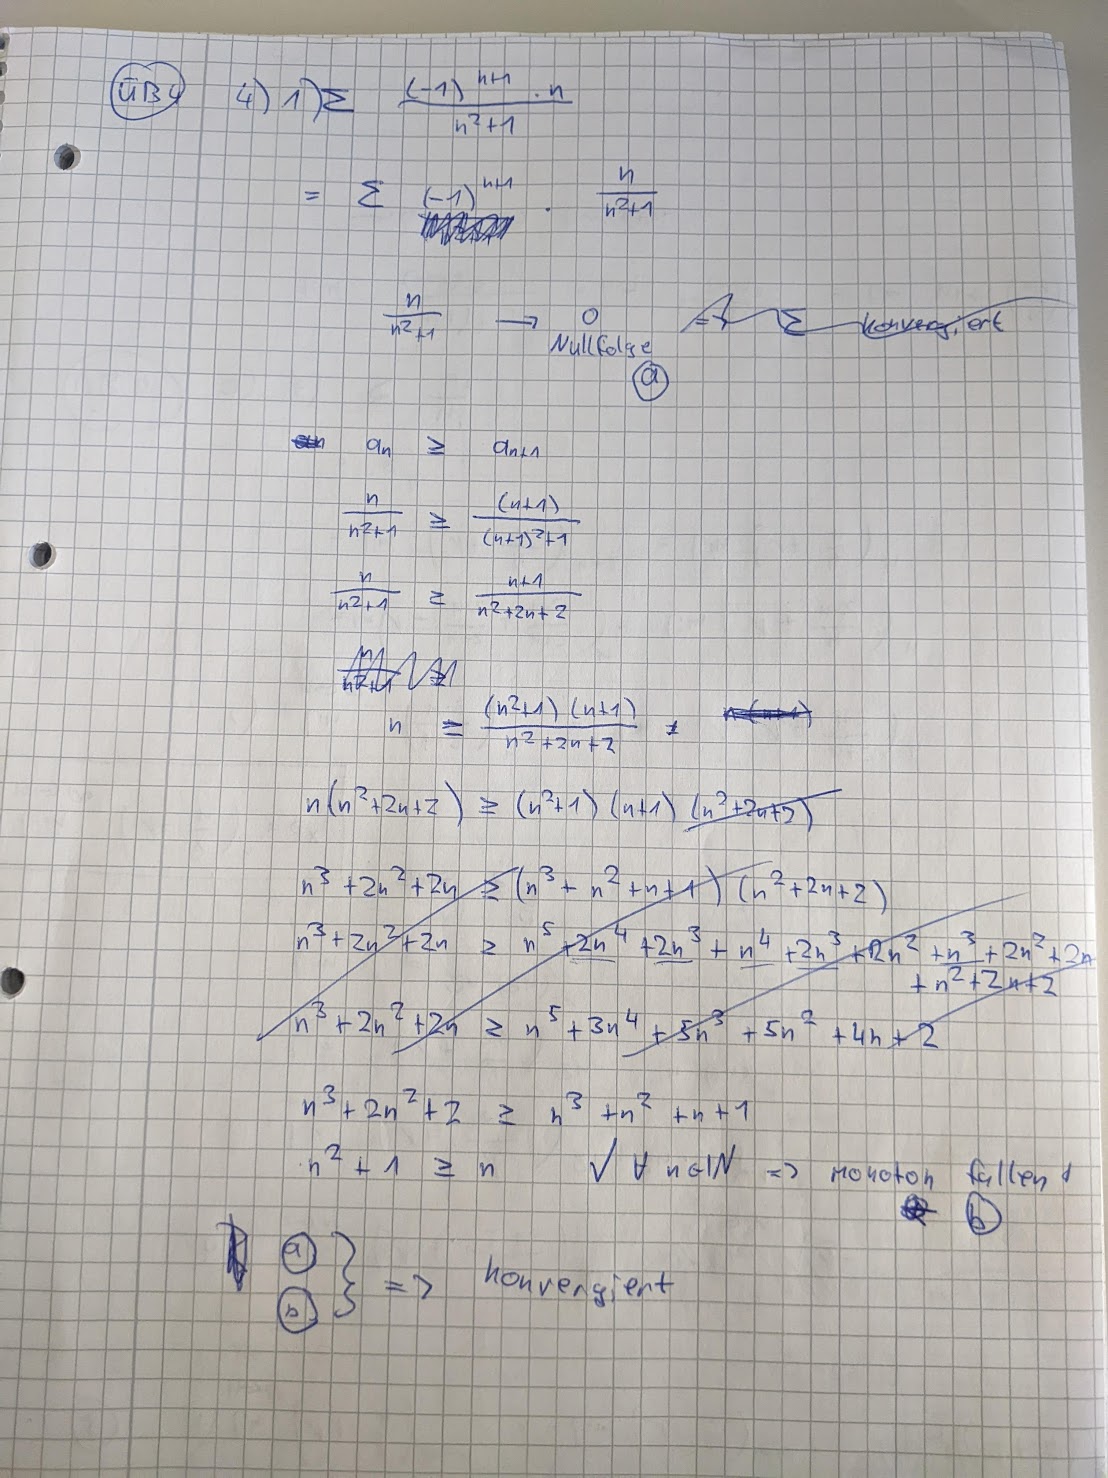 ÜB4 4) 1) Σ (-1)^{n+1} · n / (n²+1)
= Σ (-1)^{n+1} · n/(n²+1)
n/(n²+1) → 0 => Σ konvergiert
Nullfolge
a
aₙ ≥ aₙ₊₁
n/(n²+1) ≥ (n+1)/((n+1)²+1)
n/(n²+1) ≥ (n+1)/(n²+2n+2)
n ≥ (n²+1)(n+1)/(n²+2n+2)
n(n²+2n+2) ≥ (n²+1)(n+1)(n²+2n+2)
n³+2n²+2n ≥ (n³+n²+n+1)(n²+2n+2)
n³+2n²+2n ≥ n⁵+2n⁴+2n³+n⁴+2n³+2n²+n³+2n²+2n
+n²+2n+2
n³+2n²+2n ≥ n⁵+3n⁴+5n³+5n²+4n+2
n³+2n²+2 ≥ n³+n²+n+1
n²+1 ≥ n ✓ ∀ n∈ℕ => monoton fallend
b
a
b } => konvergiert